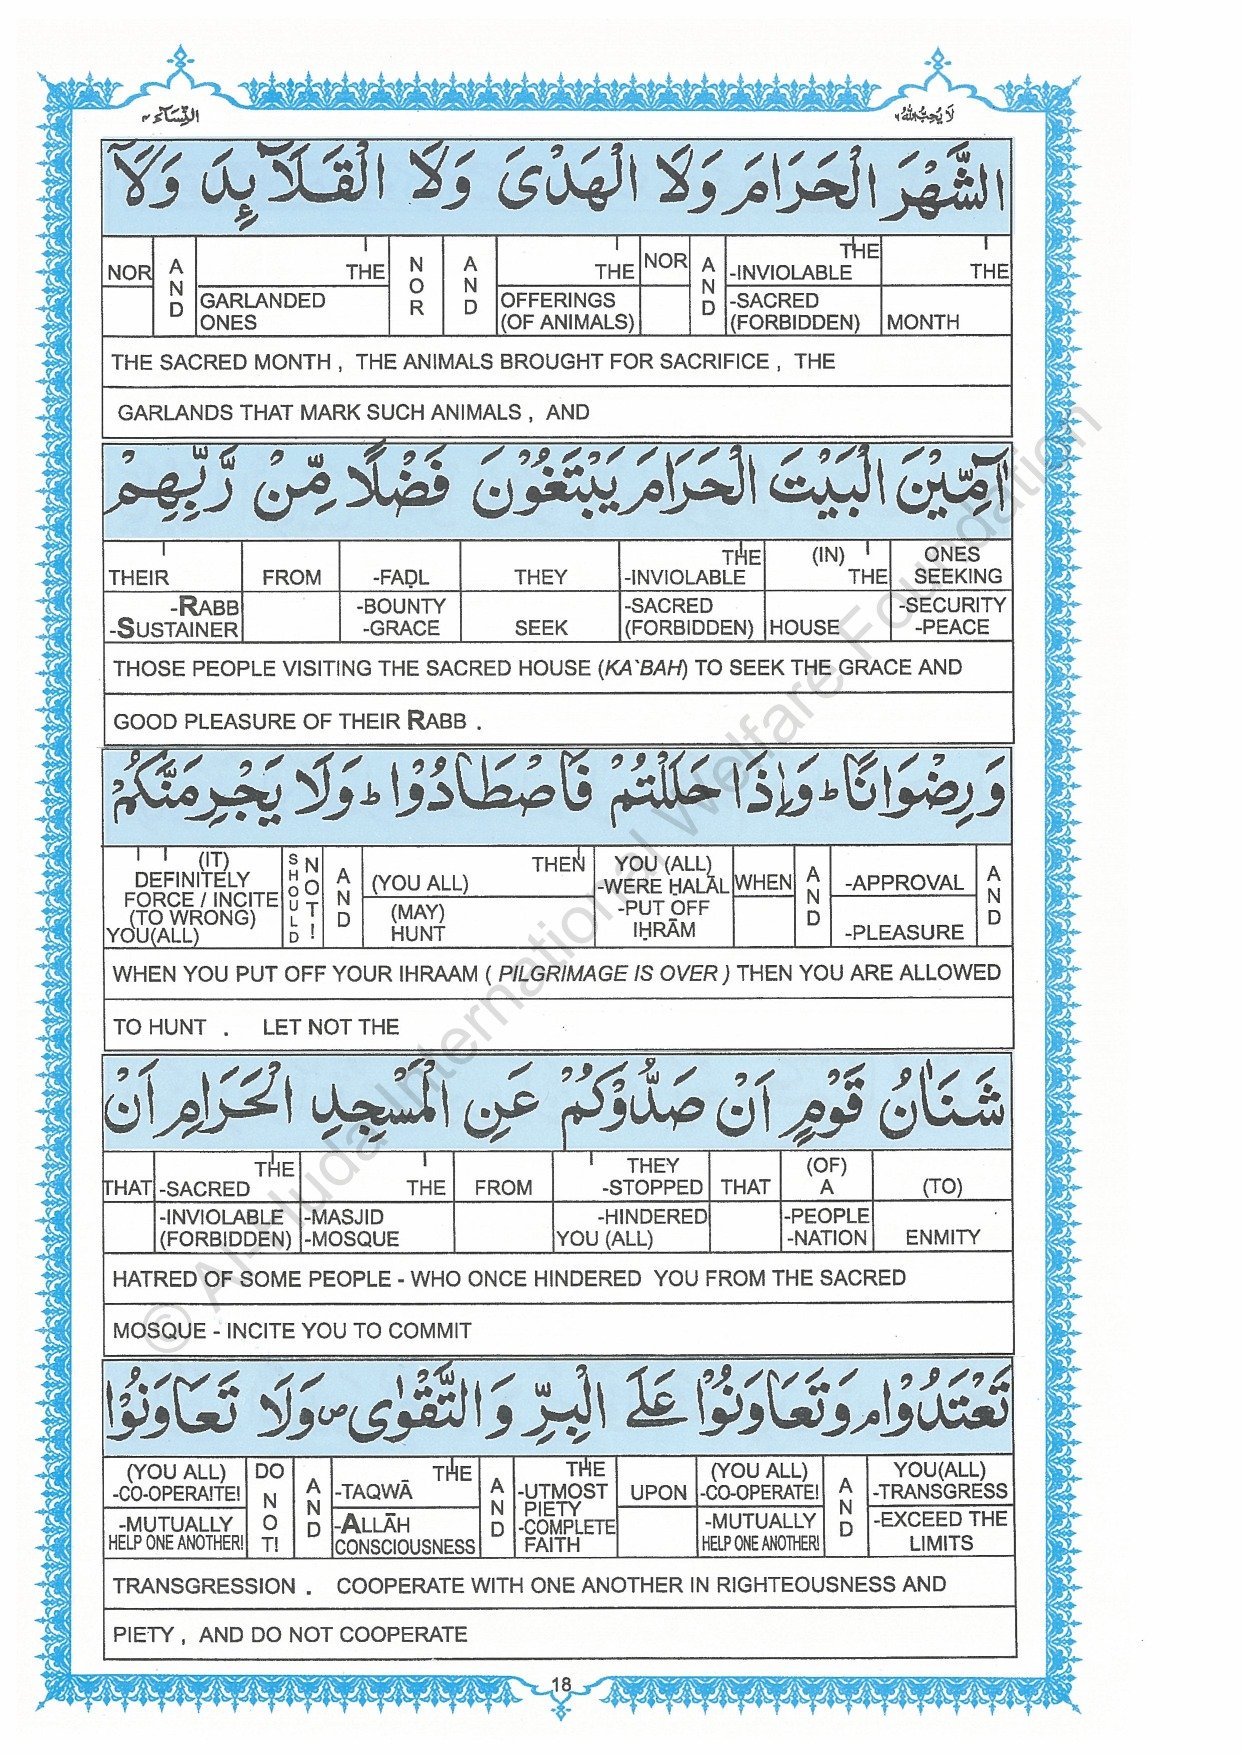 لَا يُحِبُّ اللّٰهُ ٦ النِّسَآء ٤
الشَّهْرَ الْحَرَامَ وَلَا الْهَدْىَ وَلَا الْقَلَآئِدَ وَلَآ
NOR AND THE GARLANDED ONES NOR AND THE OFFERINGS (OF ANIMALS) NOR AND THE -INVIOLABLE -SACRED (FORBIDDEN) THE MONTH
THE SACRED MONTH , THE ANIMALS BROUGHT FOR SACRIFICE , THE
GARLANDS THAT MARK SUCH ANIMALS , AND
آٰمِّيْنَ الْبَيْتَ الْحَرَامَ يَبْتَغُوْنَ فَضْلًا مِّنْ رَّبِّهِمْ
THEIR -RABB -SUSTAINER FROM -FAḌL -BOUNTY -GRACE THEY SEEK THE -INVIOLABLE -SACRED (FORBIDDEN) (IN) THE HOUSE ONES SEEKING -SECURITY -PEACE
THOSE PEOPLE VISITING THE SACRED HOUSE (KA`BAH) TO SEEK THE GRACE AND
GOOD PLEASURE OF THEIR RABB .
وَرِضْوَانًا ؕ وَاِذَا حَلَلْتُمْ فَاصْطَادُوْا ؕ وَلَا يَجْرِمَنَّكُمْ
(IT) DEFINITELY FORCE / INCITE (TO WRONG) YOU(ALL) SHOULD NOT! AND THEN (YOU ALL) (MAY) HUNT YOU (ALL) -WERE ḤALĀL -PUT OFF IḤRĀM WHEN AND -APPROVAL -PLEASURE AND
WHEN YOU PUT OFF YOUR IHRAAM ( PILGRIMAGE IS OVER ) THEN YOU ARE ALLOWED
TO HUNT . LET NOT THE
شَنَاٰنُ قَوْمٍ اَنْ صَدُّوْكُمْ عَنِ الْمَسْجِدِ الْحَرَامِ اَنْ
THAT THE -SACRED -INVIOLABLE (FORBIDDEN) THE -MASJID -MOSQUE FROM THEY -STOPPED -HINDERED YOU (ALL) THAT (OF) A -PEOPLE -NATION (TO) ENMITY
HATRED OF SOME PEOPLE - WHO ONCE HINDERED YOU FROM THE SACRED
MOSQUE - INCITE YOU TO COMMIT
تَعْتَدُوْا ۘ وَتَعَاوَنُوْا عَلَى الْبِرِّ وَالتَّقْوٰى ۪ وَلَا تَعَاوَنُوْا
(YOU ALL) -CO-OPERA!TE! -MUTUALLY HELP ONE ANOTHER! DO NOT! AND THE -TAQWĀ -ALLĀH CONSCIOUSNESS AND THE -UTMOST PIETY -COMPLETE FAITH UPON (YOU ALL) -CO-OPERATE! -MUTUALLY HELP ONE ANOTHER! AND YOU(ALL) -TRANSGRESS -EXCEED THE LIMITS
TRANSGRESSION . COOPERATE WITH ONE ANOTHER IN RIGHTEOUSNESS AND
PIETY , AND DO NOT COOPERATE
18
© Al-Huda International Welfare Foundation